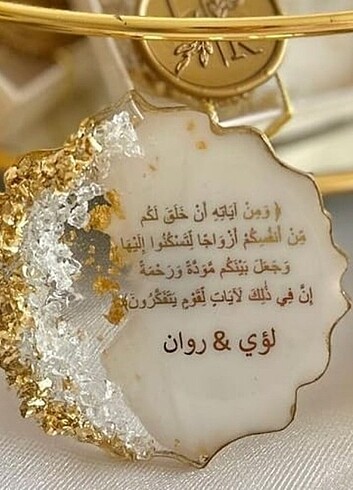 ﴿ وَمِنْ آيَاتِهِ أَنْ خَلَقَ لَكُم
مِّنْ أَنفُسِكُمْ أَزْوَاجًا لِّتَسْكُنُوا إِلَيْهَا
وَجَعَلَ بَيْنَكُم مَّوَدَّةً وَرَحْمَةً
إِنَّ فِي ذَٰلِكَ لَآيَاتٍ لِّقَوْمٍ يَتَفَكَّرُونَ﴾
لؤي & روان